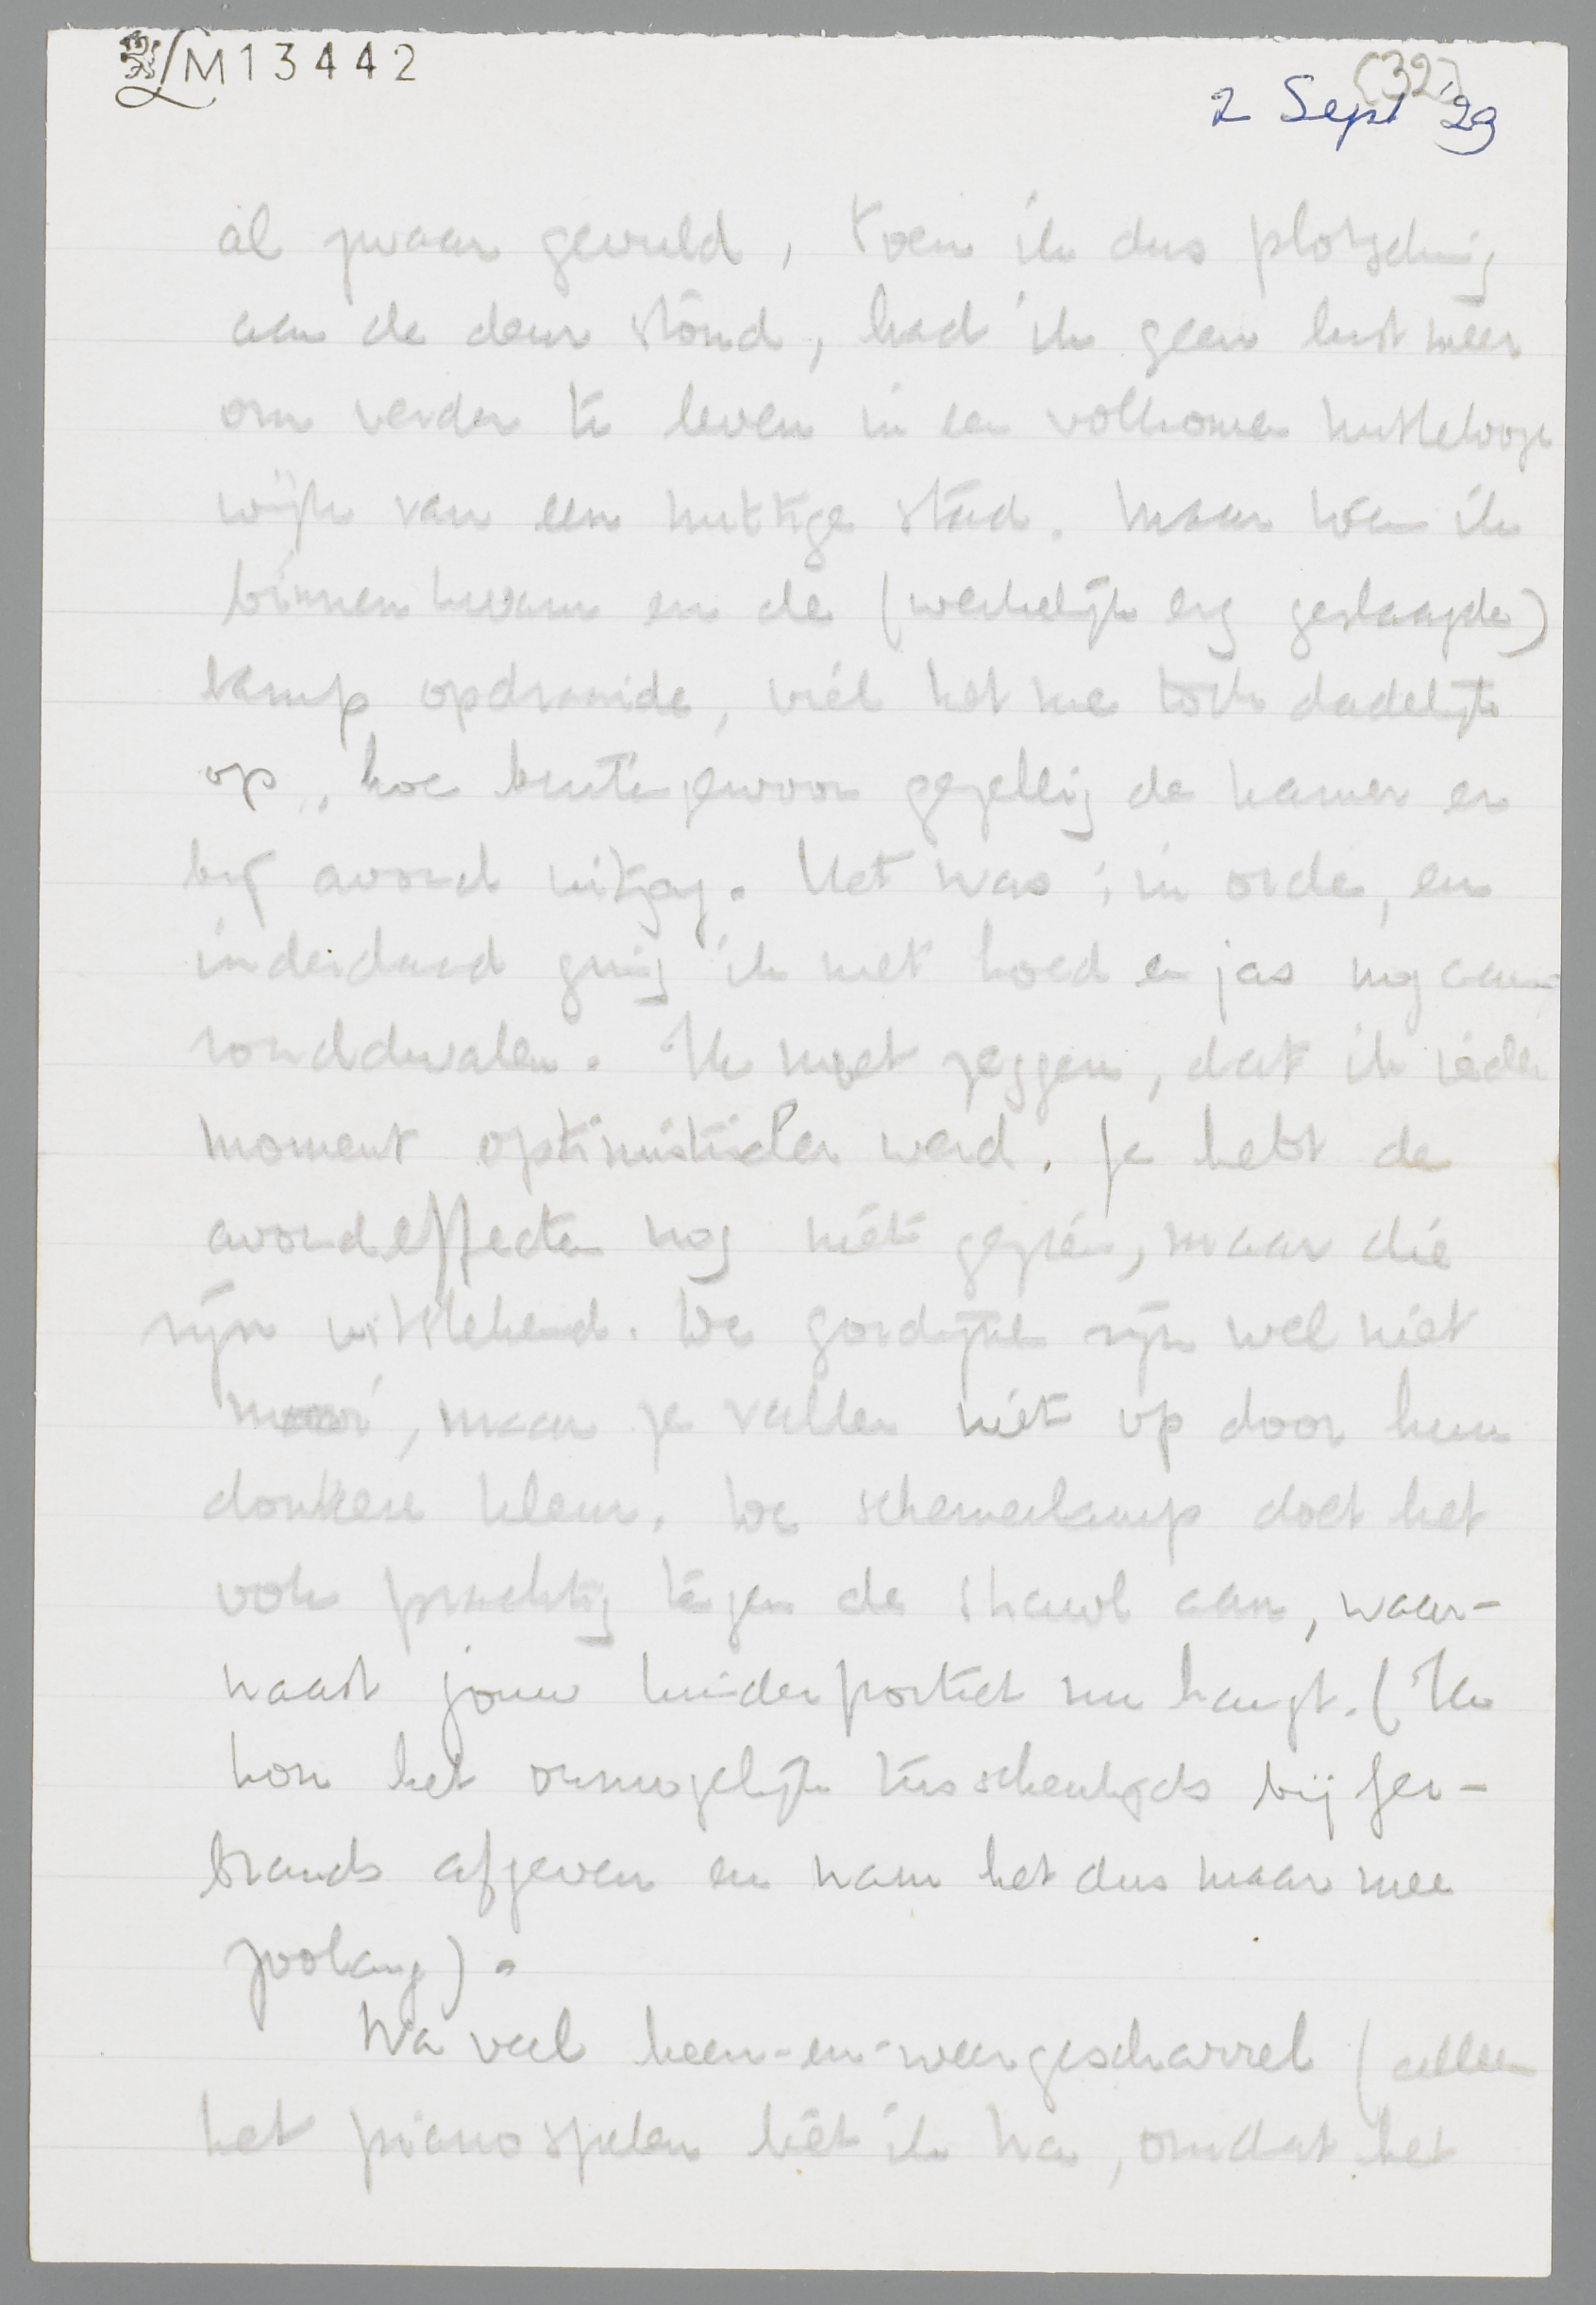 M13442
(32)
2 Sept '29
al zwaar gevuld, toen ik dus plotseling
aan de deur stond, had ik geen lust meer
om verder te leven in een volkomen nutteloze
wijk van een nuttige stad. Maar toen ik
binnen kwam en de (werkelijk erg geslaagde)
lamp opdraaide, viel het me toch dadelijk
op, hoe buitengewoon gezellig de kamer er
bij avond uitzag. Het was: in orde, en
inderdaad ging ik met hoed en jas nog aan,
ronddwalen. Ik moet zeggen, dat ik ieder
moment optimistischer werd. Je hebt de
avondeffecten nog niet gezien, maar die
zijn uitstekend. De gordijnen zijn wel niet
mooi, maar ze vallen niet op door hun
donkere kleur. De schemerlamp doet het
ook prachtig tegen de shawl aan, waar-
naast jouw kinderportret nu hangt. (Ik
kon het onmogelijk tusschentijds bij Ger-
brands afgeven en nam het dus maar mee
zoolang).
Na veel heen-en-weergescharrel (alleen
het pianospelen liet ik na, omdat het